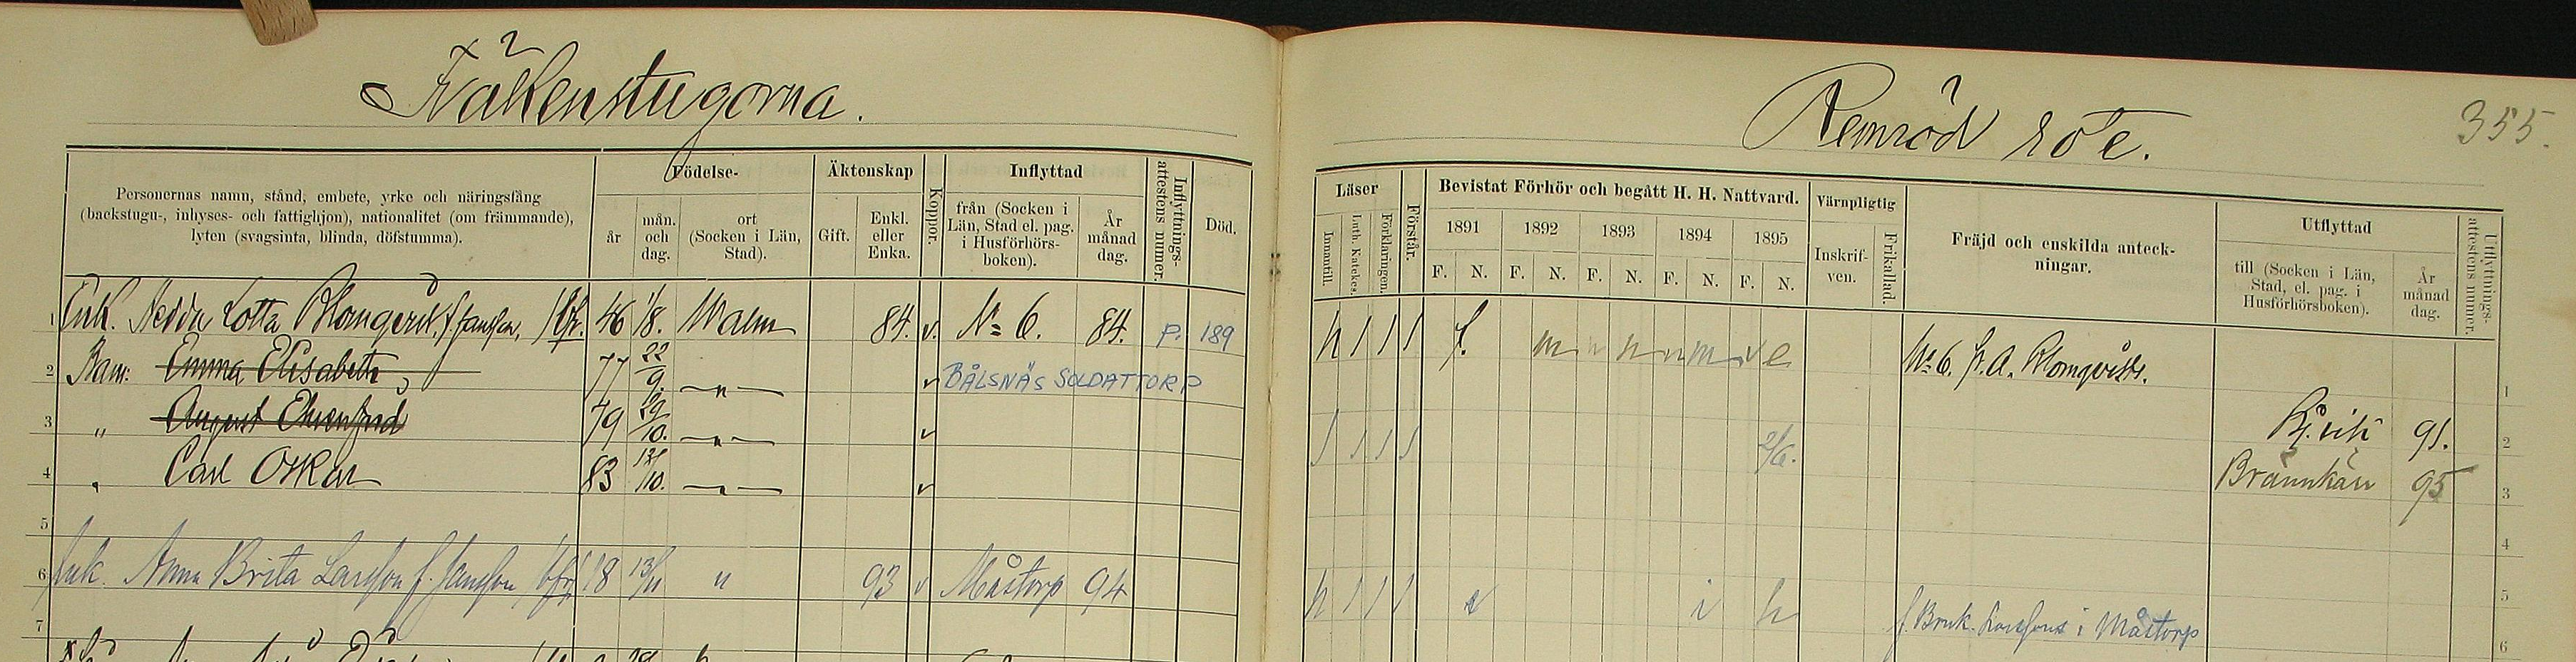 Fräkenstugorna.
Remröd rote.
355.
Personernas namn, stånd, embete, yrke och näringsfång
(backstugu-, inhyses- och fattighjon), nationalitet (om främmande),
lyten (svagsinta, blinda, döfstumma).
Födelse-
år
mån. och dag.
ort (Socken i Län, Stad).
Äktenskap
Gift.
Enkl. eller Enka.
Koppor.
Inflyttad
från (Socken i Län, Stad el. pag. i Husförhörs-boken).
År månad dag.
Inflyttnings-attestens nummer.
Död.
Läser
Innantill.
Luth. Katekes.
Förklaringen.
Förstår.
Bevistat Förhör och begått H. H. Nattvard.
1891 1892 1893 1894 1895
F. N. F. N. F. N. F. N. F. N.
Värnpligtig
Inskrif-ven.
Frikallad.
Fräjd och enskilda anteck-ningar.
Utflyttad
till (Socken i Län, Stad, el. pag. i Husförhörsboken).
År månad dag.
Utflyttnings-attestens nummer.
1 Enk. Hedda Lotta Blomqvist, f. Jansson, 46 1/8. Malm 84. v. No 6. 84. P. 189
No 6. Blomqvists. 1
2 Barn: Emma Elisabeth, 77 22/9. " v BÅLSNÄS SOLDATTORP
Bj.vik 91. 2
3 " August Ehrenfrid 79 29/10. " v
2/6.
Brännkärr 95 3
4 " Carl Oskar 83 /10. " v
4
5
6 Enk. Anna Brita Larsson f. Jansson 18 13/11 " 93 v Måstorp 94
5
f. Bruk. Larssons i Måstorp
7
6